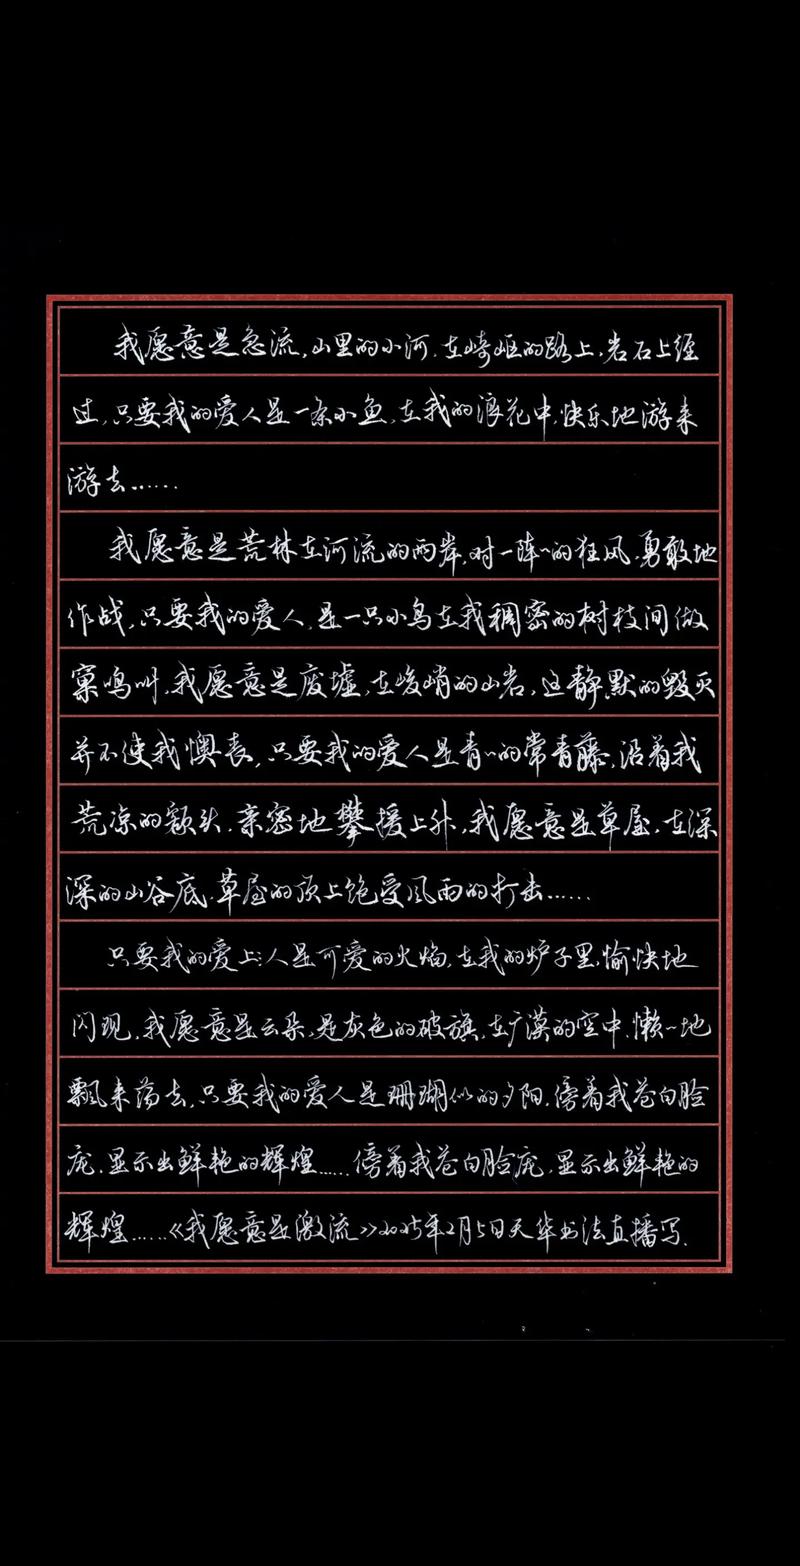 我愿意是急流,山里的小河,在崎岖的路上,岩石上经
过,只要我的爱人是一条小鱼,在我的浪花中,快乐地游来
游去……
我愿意是荒林在河流的两岸,对一阵〻的狂风,勇敢地
作战,只要我的爱人,是一只小鸟在我稠密的树枝间做
窠鸣叫,我愿意是废墟,在峻峭的山岩,这静默的毁灭
并不使我懊丧,只要我的爱人是青〻的常青藤,沿着我
荒凉的额头,亲密地攀援上升,我愿意是草屋,在深
深的山谷底,草屋的顶上饱受风雨的打击……
只要我的爱上:人是可爱的火焰,在我的炉子里,愉快地
闪现,我愿意是云朵,是灰色的破旗,在广漠的空中,懒〻地
飘来荡去,只要我的爱人是珊瑚似的夕阳,傍着我苍白脸
庞,显示出鲜艳的辉煌……傍着我苍白脸庞,显示出鲜艳的
辉煌……《我愿意是激流》2025年2月5日天华书法直播写.